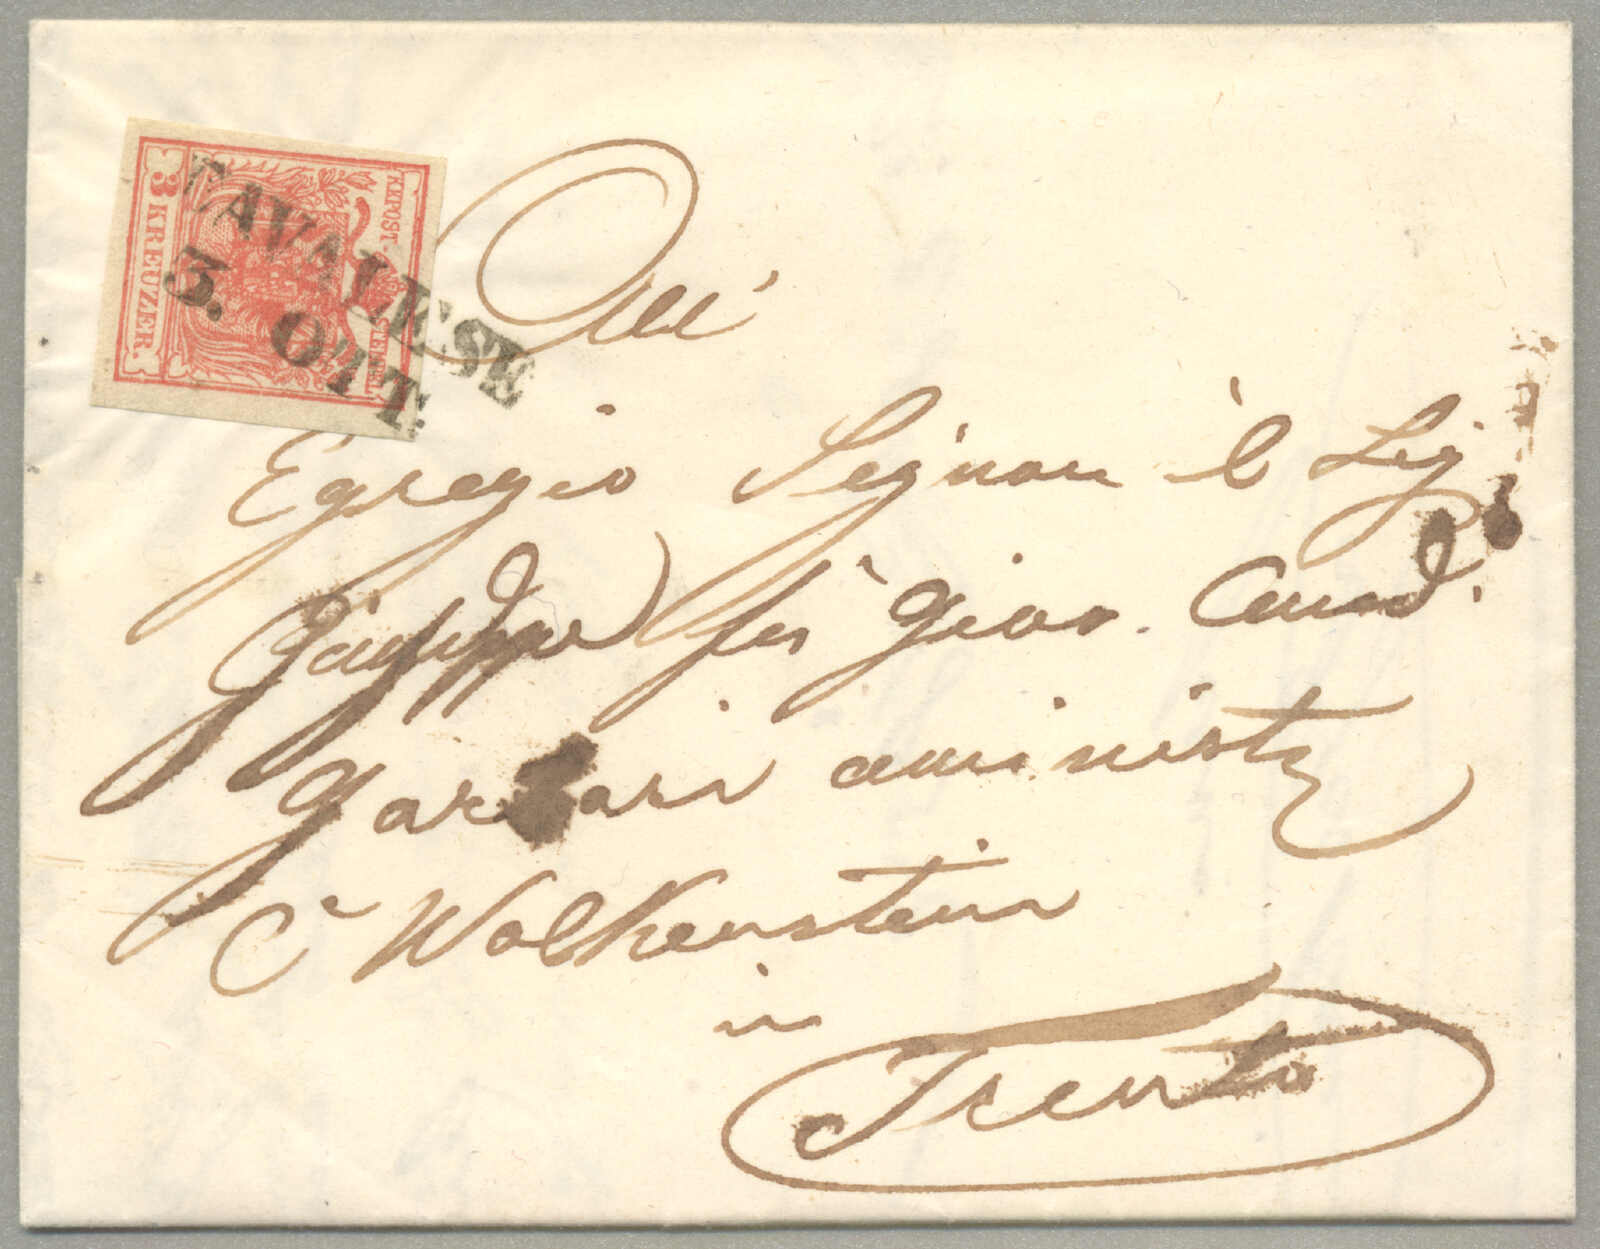 KKPOST-STEMPEL
3 KREUZER.
CAVALESE
3. OTT.
All'
Egregio Signore è Sig
Giuseppe fù Giov. Cand.
Garbari aministr
Ce Wolkenstein
in
Trento